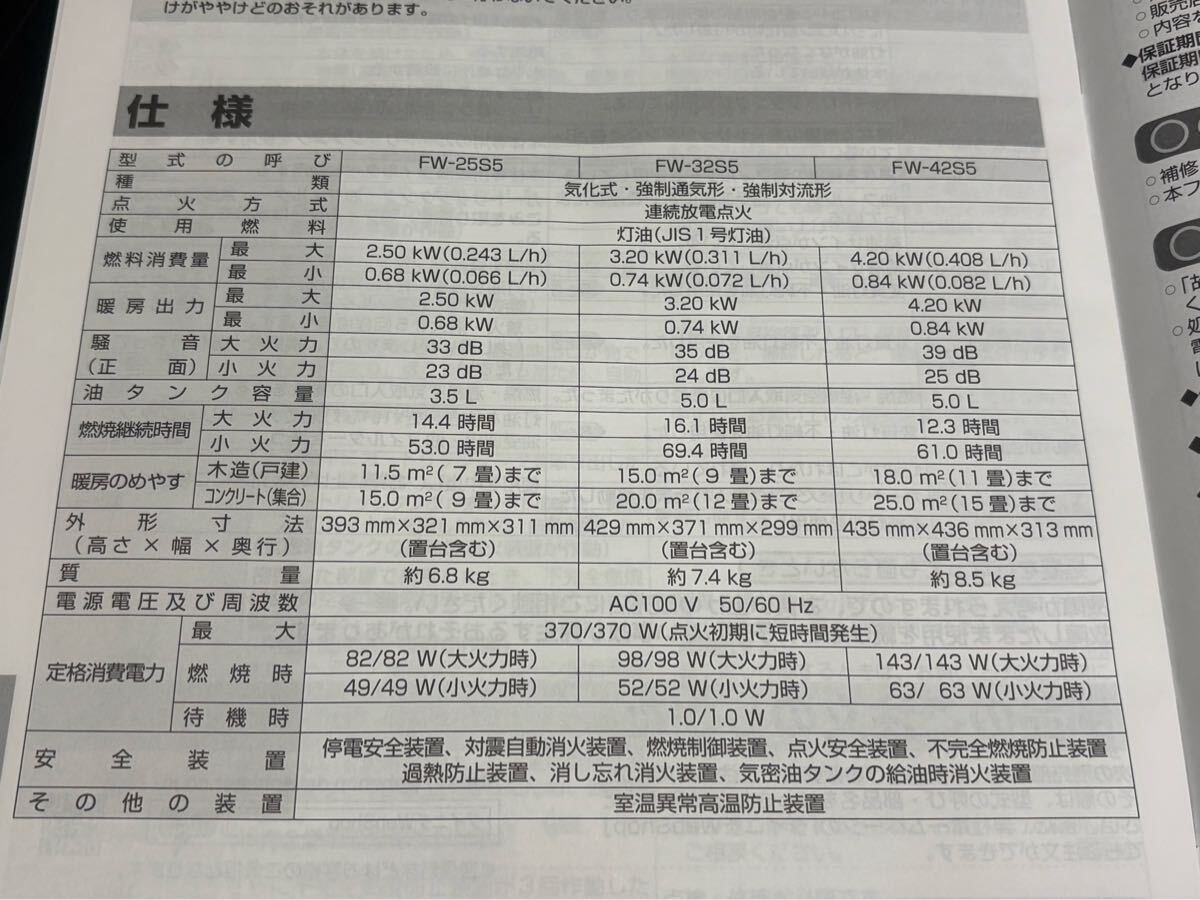 けがややけどのおそれがあります。
仕様
型式の呼び FW-25S5 FW-32S5 FW-42S5
種類 気化式・強制通気形・強制対流形
点火方式 連続放電点火
使用燃料 灯油(JIS１号灯油)
燃料消費量 最大 2.50 kW(0.243 L/h) 3.20 kW(0.311 L/h) 4.20 kW(0.408 L/h)
最小 0.68 kW(0.066 L/h) 0.74 kW(0.072 L/h) 0.84 kW(0.082 L/h)
暖房出力 最大 2.50 kW 3.20 kW 4.20 kW
最小 0.68 kW 0.74 kW 0.84 kW
騒音(正面) 大火力 33 dB 35 dB 39 dB
小火力 23 dB 24 dB 25 dB
油タンク容量 3.5 L 5.0 L 5.0 L
燃焼継続時間 大火力 14.4 時間 16.1 時間 12.3 時間
小火力 53.0 時間 69.4 時間 61.0 時間
暖房のめやす 木造(戸建) 11.5 m²( 7 畳)まで 15.0 m²( 9 畳)まで 18.0 m²(11 畳)まで
コンクリート(集合) 15.0 m²( 9 畳)まで 20.0 m²(12 畳)まで 25.0 m²(15 畳)まで
外形寸法 393 mm×321 mm×311 mm 429 mm×371 mm×299 mm 435 mm×436 mm×313 mm
(高さ×幅×奥行) (置台含む) (置台含む) (置台含む)
質量 約6.8 kg 約7.4 kg 約8.5 kg
電源電圧及び周波数 AC100 V 50/60 Hz
定格消費電力 最大 370/370 W(点火初期に短時間発生)
燃焼時 82/82 W(大火力時) 98/98 W(大火力時) 143/143 W(大火力時)
49/49 W(小火力時) 52/52 W(小火力時) 63/ 63 W(小火力時)
待機時 1.0/1.0 W
安全装置 停電安全装置、対震自動消火装置、燃焼制御装置、点火安全装置、不完全燃焼防止装置
過熱防止装置、消し忘れ消火装置、気密油タンクの給油時消火装置
その他の装置 室温異常高温防止装置
○販売店
○内容を
◆保証期間
保証期間
となり
○補修
○本フ